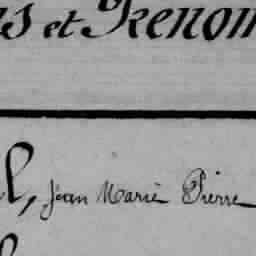 ms et Prénom
l, Jean Marie Pierre